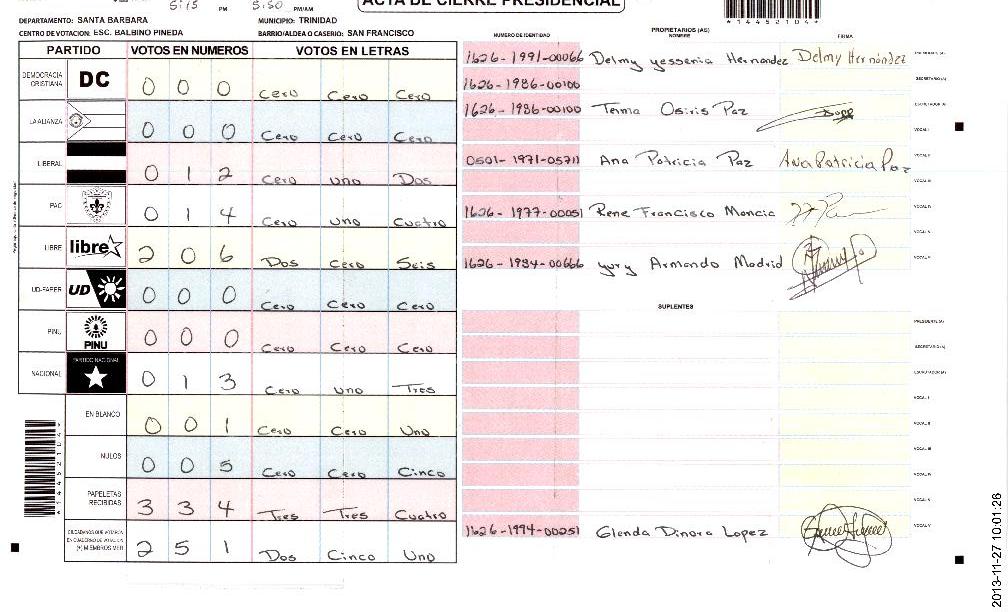 5:15 PM 5:50 PM/AM
ACTA DE CIERRE PRESIDENCIAL
*14452104*
DEPARTAMENTO: SANTA BARBARA MUNICIPIO: TRINIDAD
CENTRO DE VOTACION: ESC. BALBINO PINEDA BARRIO/ALDEA O CASERIO: SAN FRANCISCO
PARTIDO VOTOS EN NUMEROS VOTOS EN LETRAS
DEMOCRACIA CRISTIANA DC 0 0 0 Cero Cero Cero
LA ALIANZA 0 0 0 Cero Cero Cero
LIBERAL 0 1 2 Cero uno Dos
PAC 0 1 4 Cero uno Cuatro
LIBRE libre 2 0 6 Dos Cero Seis
UD-FAPER UD 0 0 0 Cero Cero Cero
PINU PINU 0 0 0 Cero Cero Cero
NACIONAL PARTIDO NACIONAL 0 1 3 Cero uno Tres
EN BLANCO 0 0 1 Cero Cero Uno
NULOS 0 0 5 Cero Cero Cinco
PAPELETAS RECIBIDAS 3 3 4 Tres Tres Cuatro
CIUDADANOS QUE VOTARON EN CUADERNO DE VOTACION (+) MIEMBROS MER 2 5 1 Dos Cinco Uno
PROPIETARIOS (AS)
NUMERO DE IDENTIDAD NOMBRE FIRMA
1626-1991-00066 Delmy yessenia Hernandez Delmy Hernández
1626-1986-00100
1626-1986-00100 Osiris Paz
0501-1971-05711 Ana Patricia Paz Ana Patricia Paz
1626-1977-00051 Rene Francisco Mancia
1626-1984-00666 yury Armando Madrid
SUPLENTES
PRESIDENTE (A)
SECRETARIO (A)
ESCRUTADOR (A)
VOCAL I
VOCAL II
VOCAL III
VOCAL IV
VOCAL V
1626-1994-00051 Glenda Dinora Lopez
2013-11-27 10:01:26